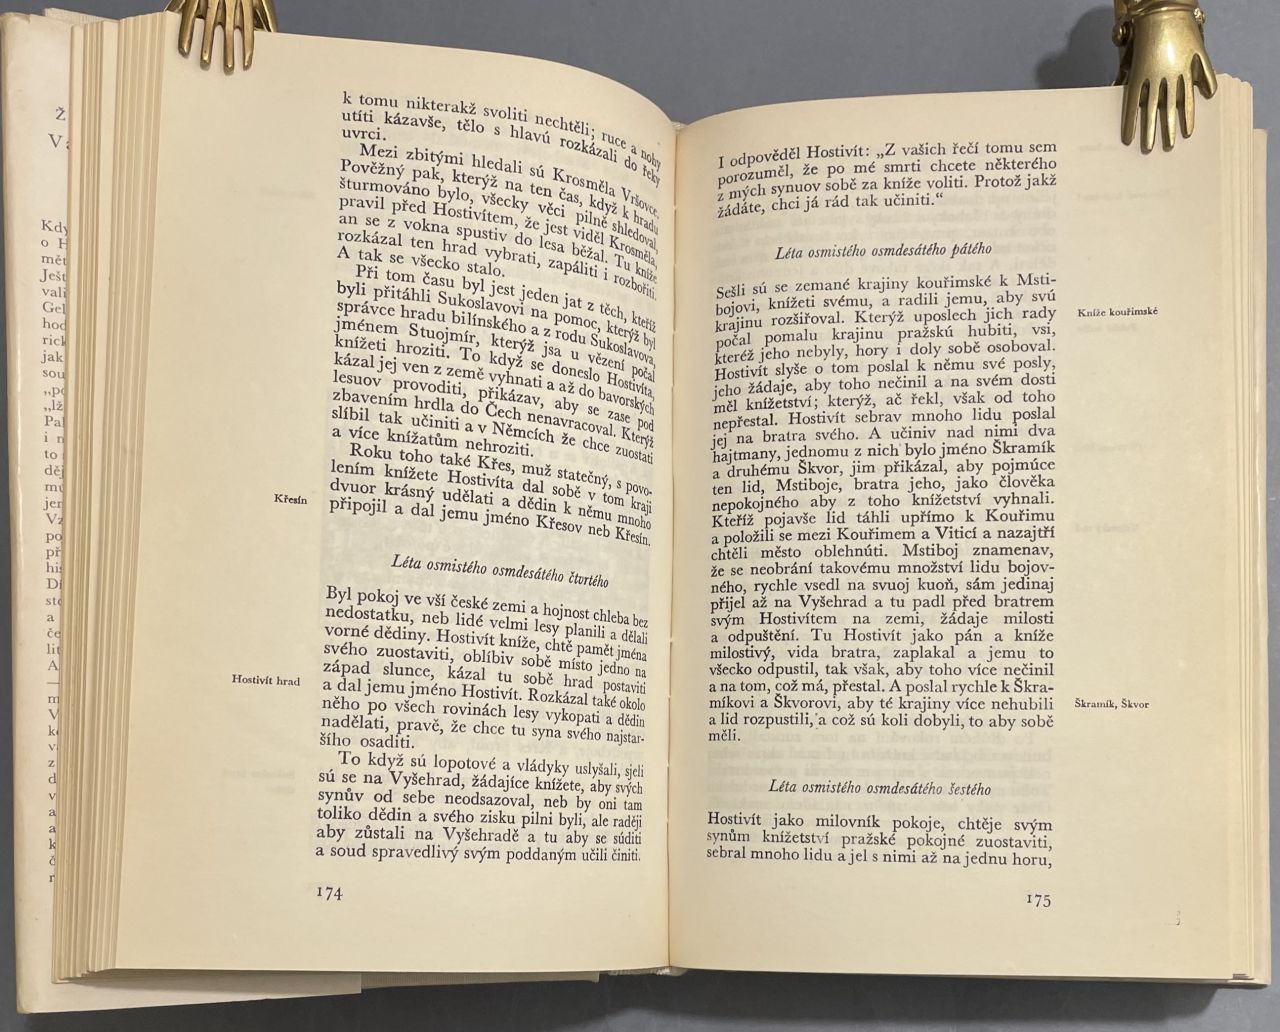 k tomu nikterakž svoliti nechtěli; ruce a nohy
utíti kázavše, tělo s hlavú rozkázali do řeky
uvrci.
Mezi zbitými hledali sú Krosměla Vršovce.
Pověžný pak, kterýž na ten čas, když k hradu
šturmováno bylo, všecky věci pilně shledoval,
pravil před Hostivítem, že jest viděl Krosměla,
an se z vokna spustiv do lesa běžal. Tu kníže
rozkázal ten hrad vybrati, zapáliti i rozbořiti.
A tak se všecko stalo.
Při tom času byl jest jeden jat z těch, kteříž
byli přitáhli Sukoslavovi na pomoc, kterýž byl
správce hradu bilínského a z rodu Sukoslavova,
jménem Stuojmír, kterýž jsa u vězení počal
knížeti hroziti. To když se doneslo Hostivíta,
kázal jej ven z země vyhnati a až do bavorských
lesuov provoditi, přikázav, aby se zase pod
zbavením hrdla do Čech nenavracoval. Kterýž
slíbil tak učiniti a v Němcích že chce zuostati
a více knížatům nehroziti.
Roku toho také Křes, muž statečný, s povo-
lením knížete Hostivíta dal sobě v tom kraji
dvuor krásný udělati a dědin k němu mnoho
připojil a dal jemu jméno Křesov neb Křesín.
Křesín
Léta osmistého osmdesátého čtvrtého
Byl pokoj ve vší české zemi a hojnost chleba bez
nedostatku, neb lidé velmi lesy planili a dělali
vorné dědiny. Hostivít kníže, chtě pamět jména
svého zuostaviti, oblíbiv sobě místo jedno na
západ slunce, kázal tu sobě hrad postaviti
a dal jemu jméno Hostivít. Rozkázal také okolo
něho po všech rovinách lesy vykopati a dědin
nadělati, pravě, že chce tu syna svého najstar-
šího osaditi.
Hostivít hrad
To když sú lopotové a vládyky uslyšali, sjeli
sú se na Vyšehrad, žádajíce knížete, aby svých
synův od sebe neodsazoval, neb by oni tam
toliko dědin a svého zisku pilni byli, ale raději
aby zůstali na Vyšehradě a tu aby se súditi
a soud spravedlivý svým poddaným učili činiti.
174
I odpověděl Hostivít: „Z vašich řečí tomu sem
porozuměl, že po mé smrti chcete některého
z mých synuov sobě za kníže voliti. Protož jakž
žádáte, chci já rád tak učiniti.“
Léta osmistého osmdesátého pátého
Sešli sú se zemané krajiny kouřimské k Msti-
bojovi, knížeti svému, a radili jemu, aby svú
krajinu rozšiřoval. Kterýž uposlech jich rady
počal pomalu krajinu pražskú hubiti, vsi,
kteréž jeho nebyly, hory i doly sobě osoboval.
Hostivít slyše o tom poslal k němu své posly,
jeho žádaje, aby toho nečinil a na svém dosti
měl knížetství; kterýž, ač řekl, však od toho
nepřestal. Hostivít sebrav mnoho lidu poslal
jej na bratra svého. A učiniv nad nimi dva
hajtmany, jednomu z nich bylo jméno Škramík
a druhému Škvor, jim přikázal, aby pojmúce
ten lid, Mstiboje, bratra jeho, jako člověka
nepokojného aby z toho knížetství vyhnali.
Kteříž pojavše lid táhli upřímo k Kouřimu
a položili se mezi Kouřimem a Viticí a nazajtří
chtěli město oblehnúti. Mstiboj znamenav,
že se neobrání takovému množství lidu bojov-
ného, rychle vsedl na svuoj kuoň, sám jedinaj
přijel až na Vyšehrad a tu padl před bratrem
svým Hostivítem na zemi, žádaje milosti
a odpuštění. Tu Hostivít jako pán a kníže
milostivý, vida bratra, zaplakal a jemu to
všecko odpustil, tak však, aby toho více nečinil
a na tom, což má, přestal. A poslal rychle k Škra-
míkovi a Škvorovi, aby té krajiny více nehubili
a lid rozpustili, a což sú koli dobyli, to aby sobě
měli.
Kníže kouřimské
Škramík, Škvor
Léta osmistého osmdesátého šestého
Hostivít jako milovník pokoje, chtěje svým
synům knížetství pražské pokojné zuostaviti,
sebral mnoho lidu a jel s nimi až na jednu horu,
175